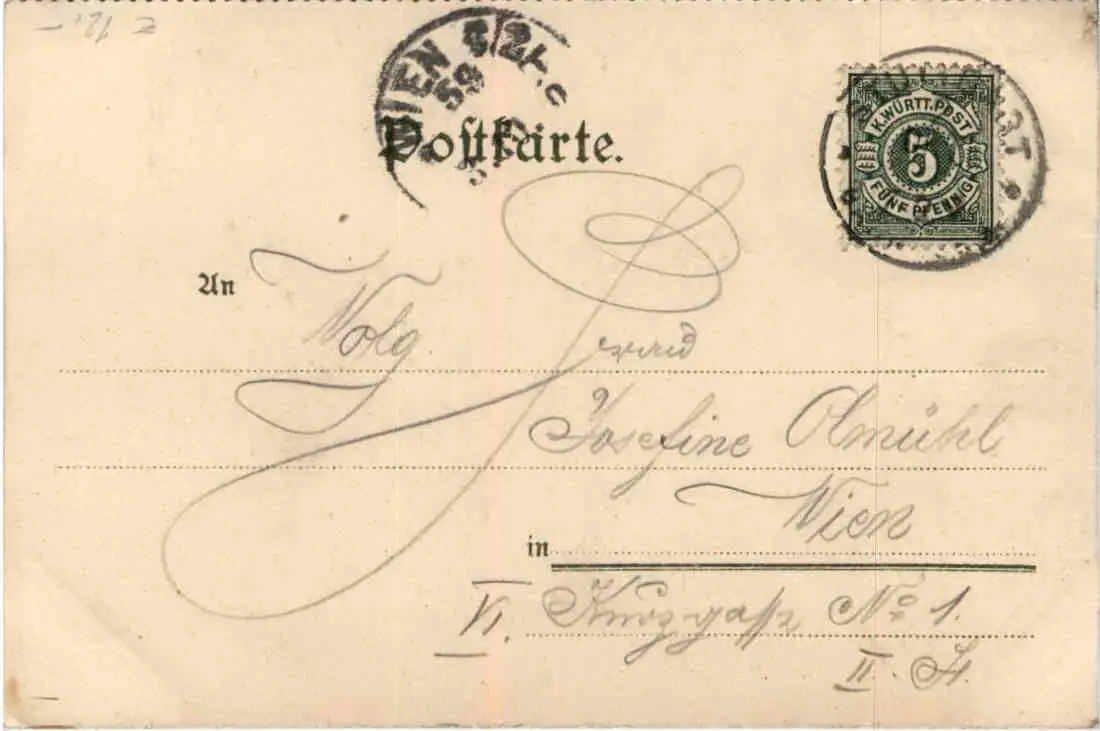 Z 12,-
WIEN
59
Postkarte.
K. WÜRTT. POST
5
FÜNF PFENNIG
An
Wolg.
Frau
Josefine Olmühl
in Wien
VI. Kurzgasse No 1.
II. St.